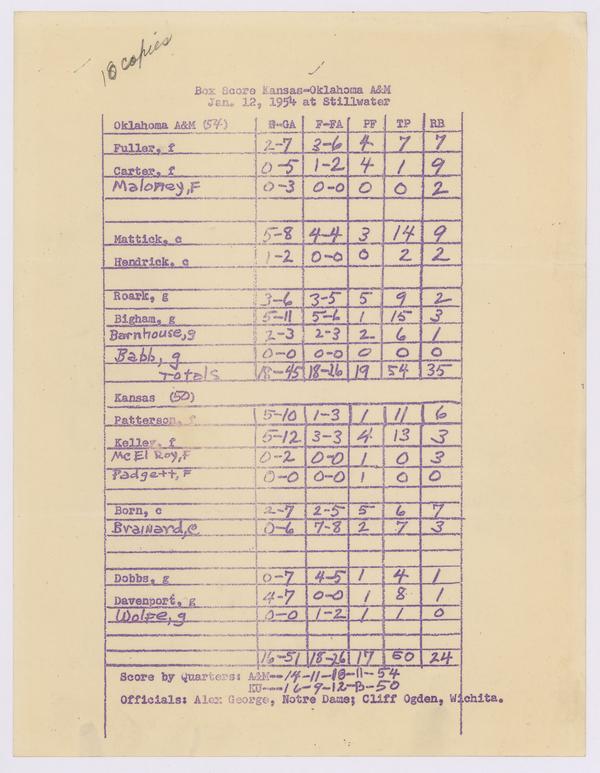 18 copies
Box Score Kansas-Oklahoma A&M
Jan. 12, 1954 at Stillwater
Oklahoma A&M (54) G-GA F-FA PF TP RB
Fuller, f 2-7 3-6 4 7 7
Carter, f 0-5 1-2 4 1 9
Maloney, F 0-3 0-0 0 0 2
Mattick, c 5-8 4-4 3 14 9
Hendrick, c 1-2 0-0 0 2 2
Roark, g 3-6 3-5 5 9 2
Bigham, g 5-11 5-6 1 15 3
Barnhouse, g 2-3 2-3 2 6 1
Babb, g 0-0 0-0 0 0 0
Totals 18-45 18-26 19 54 35
Kansas (50)
Patterson, f 5-10 1-3 1 11 6
Kelley, f 5-12 3-3 4 13 3
McElRoy, F 0-2 0-0 1 0 3
Padgett, F 0-0 0-0 1 0 0
Born, c 2-7 2-5 5 6 7
Brainard, c 0-6 7-8 2 7 3
Dobbs, g 0-7 4-5 1 4 1
Davenport, g 4-7 0-0 1 8 1
Wolfe, g 0-0 1-2 1 1 0
16-51 18-26 17 50 24
Score by Quarters: A&M--14-11-18-11-54
KU---16-9-12-13-50
Officials: Alex George, Notre Dame; Cliff Ogden, Wichita.